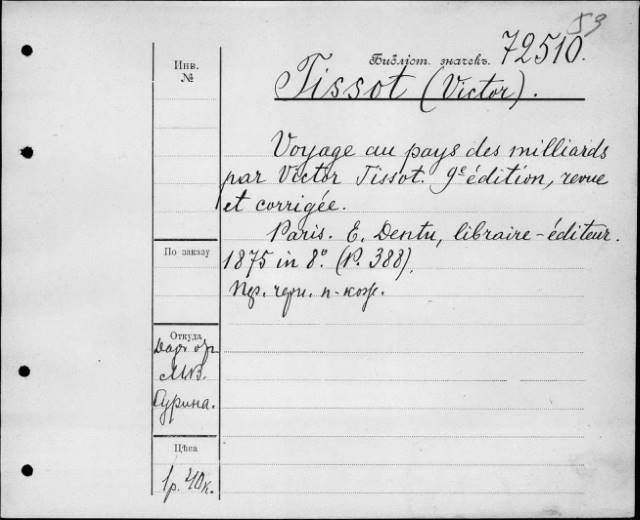 59
Библіот. значекъ. 72510.
Инв.
№
Tissot (Victor).
Voyage au pays des milliards
par Victor Tissot. 9e édition, revue
et corrigée.
Paris. E. Dentu, libraire-éditeur.
По заказу
1875 in 8°. (P. 388).
Пер. черн. п-кож.
Откуда
Даръ отъ
М.В.
Сурина.
Цѣна
1р. 40к.